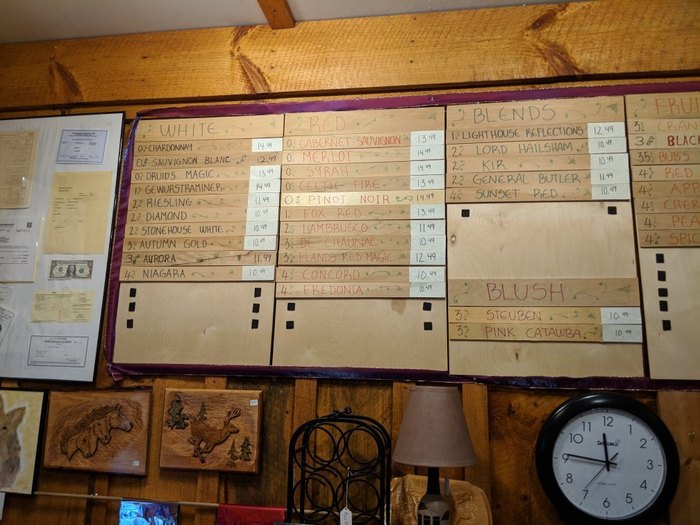 WHITE
0. CHARDONNAY 14.49
0. SAUVIGNON BLANC 12.49
0. DRUID'S MAGIC 13.49
1. GEWURSTRAMINER 14.49
2. RIESLING 11.49
2. DIAMOND 10.49
2. STONEHOUSE WHITE 10.49
3. AUTUMN GOLD 10.49
3. AURORA 11.99
4. NIAGARA 10.49
RED
0. CABERNET SAUVIGNON 13.49
0. MERLOT 14.49
0. SYRAH 14.49
0. CELTIC FIRE 13.49
0. PINOT NOIR 14.49
1. FOX RED 13.49
2. LAMBRUSCO 11.49
3. DE CHAUNAC 10.49
3. FLANDS RED MAGIC 12.49
4. CONCORD 10.49
4. FREDONIA 10.49
BLENDS
1. LIGHTHOUSE REFLECTIONS 12.49
2. LORD HAILSHAM 10.49
2. KIR 10.49
2. GENERAL BUTLER 11.49
4. SUNSET RED 10.49
BLUSH
3. STEUBEN 10.49
3. PINK CATAWBA 10.49
FRU
3. CRAN
3. BLAC
3.5 BUB'S
4. RED
4. AP
4. CHE
4. PEA
4. SPIC
12
1
2
3
4
5
6
7
8
9
10
11